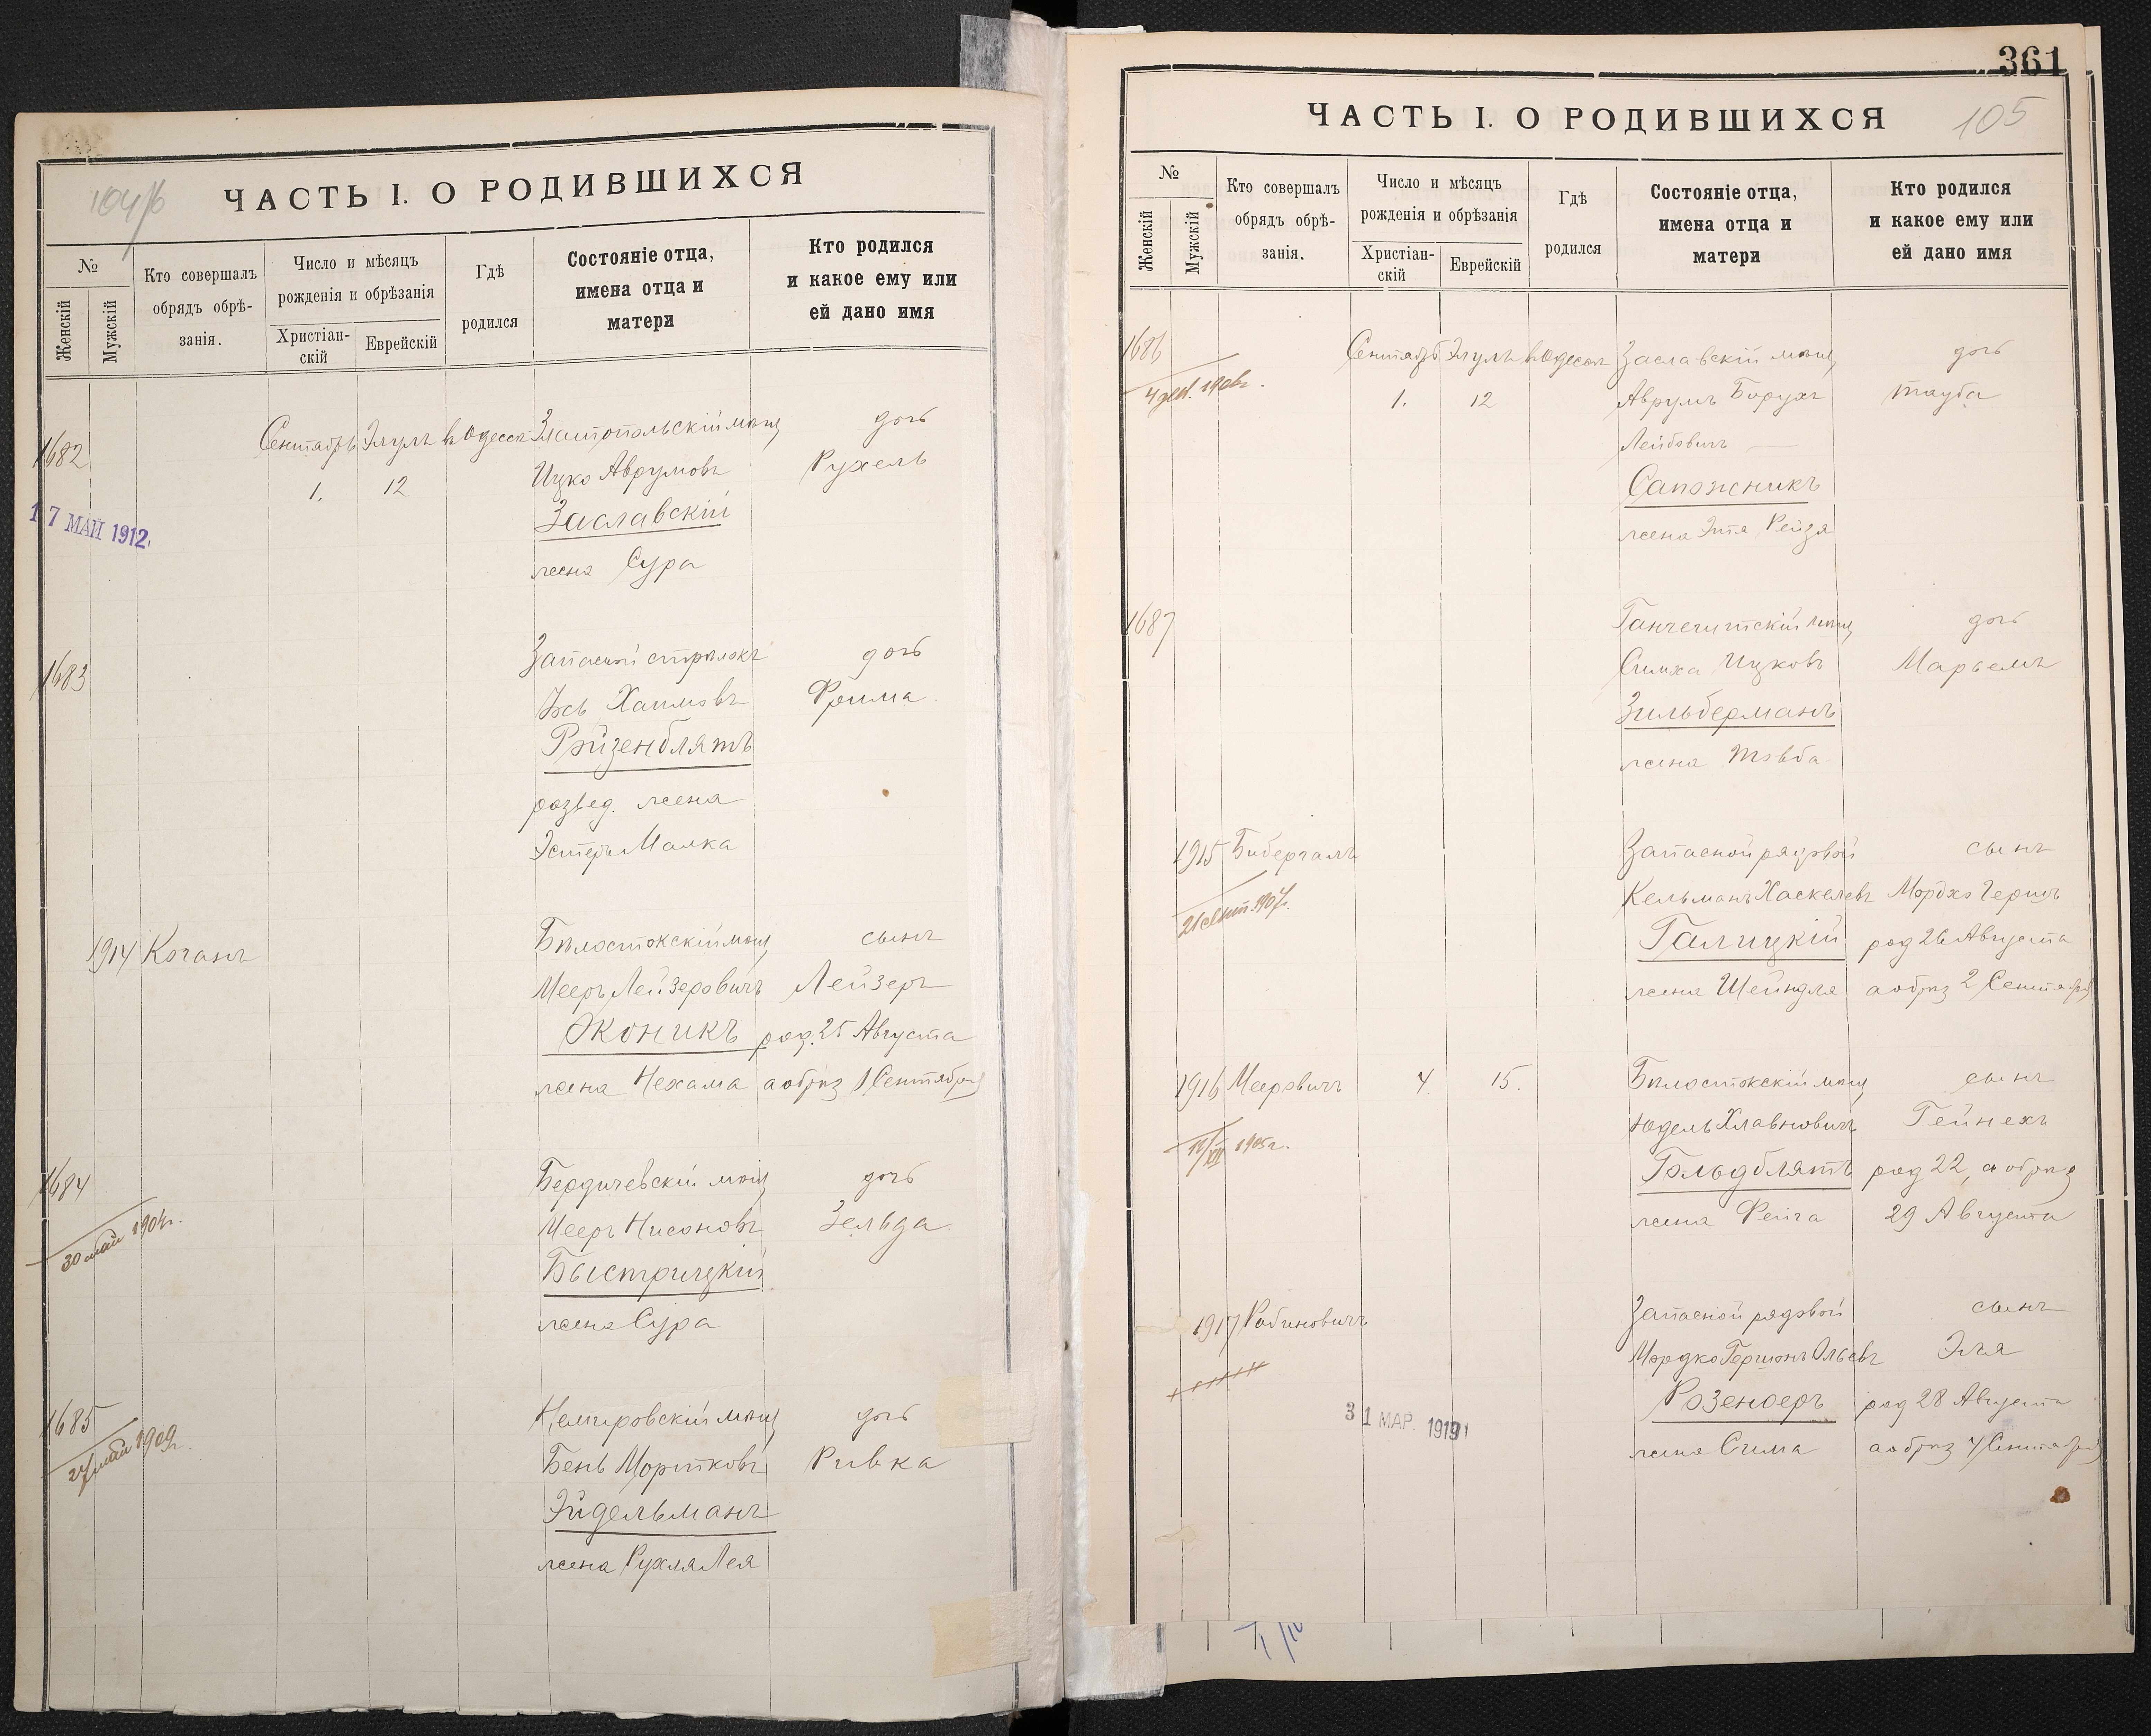 104/б
ЧАСТЬ I. О РОДИВШИХСЯ
№
Женскій
Мужскій
Кто совершалъ
обрядъ обрѣ-
занія.
Число и мѣсяцъ
рожденія и обрѣзанія
Христіан-
скій
Еврейскій
Гдѣ
родился
Состояніе отца,
имена отца и
матери
Кто родился
и какое ему или
ей дано имя
1682
Сентябрь Элулъ въ Одессѣ Златопольскій мѣщ дочь
1. 12 Ицко Аврумовъ Рухель
17 МАЙ 1912.
Заславскій
жена Сура
1683
Запасный стрѣлокъ дочь
Хаимовъ Фрима
Ройзенблятъ
развед. жена
Эстеръ Малка
1914 Коганъ Бѣлостокскій мѣщ сынъ
Мееръ Лейзеровичъ Лейзеръ
Оконикъ род. 25 Августа
жена Нехама а обрѣз 1 Сентября
1684
Бердичевскій мѣщ дочь
30 май 1904г.
Мееръ Нисоновъ Зельда
Быстрицкій
жена Сура
1685
Немировскій мѣщ дочь
27 май 1909г.
Бень Мортковъ Ривка
Эйдельманъ
жена Рухля Лея
361
ЧАСТЬ I. О РОДИВШИХСЯ
105
№
Женскій
Мужскій
Кто совершалъ
обрядъ обрѣ-
занія.
Число и мѣсяцъ
рожденія и обрѣзанія
Христіан-
скій
Еврейскій
Гдѣ
родился
Состояніе отца,
имена отца и
матери
Кто родился
и какое ему или
ей дано имя
1686
Сентябрь Элулъ въ Одессѣ Заславскій мѣщ дочь
1. 12 Аврумъ Борухъ Тауба
Лейбовичъ
Сапожникъ
жена Эта Рейзя
1687
Ганчештскій мѣщ дочь
Симха Ицковъ Марьемъ
Зильберманъ
жена Товба
1915 Бибергалъ Запасной рядовой сынъ
21 сент. 1907г.
Кельманъ Хаскелевъ Мордко Гершъ
Галицкій род 26 Августа
жена Шейндля а обрѣз 2 Сентября
1916 Мееровичъ 4. 15. Бѣлостокскій мѣщ сынъ
XII 1905г.
Юдель Хлавновичъ Гейнехъ
Гольдблятъ род 22, а обрѣз
жена Фейга 29 Августа
1917 Рабиновичъ Запасной рядовой сынъ
Мордко Гершонъ Эля
Розеноеръ род 28 Августа
31 МАР. 1919
жена Сима а обрѣз 4 Сентября